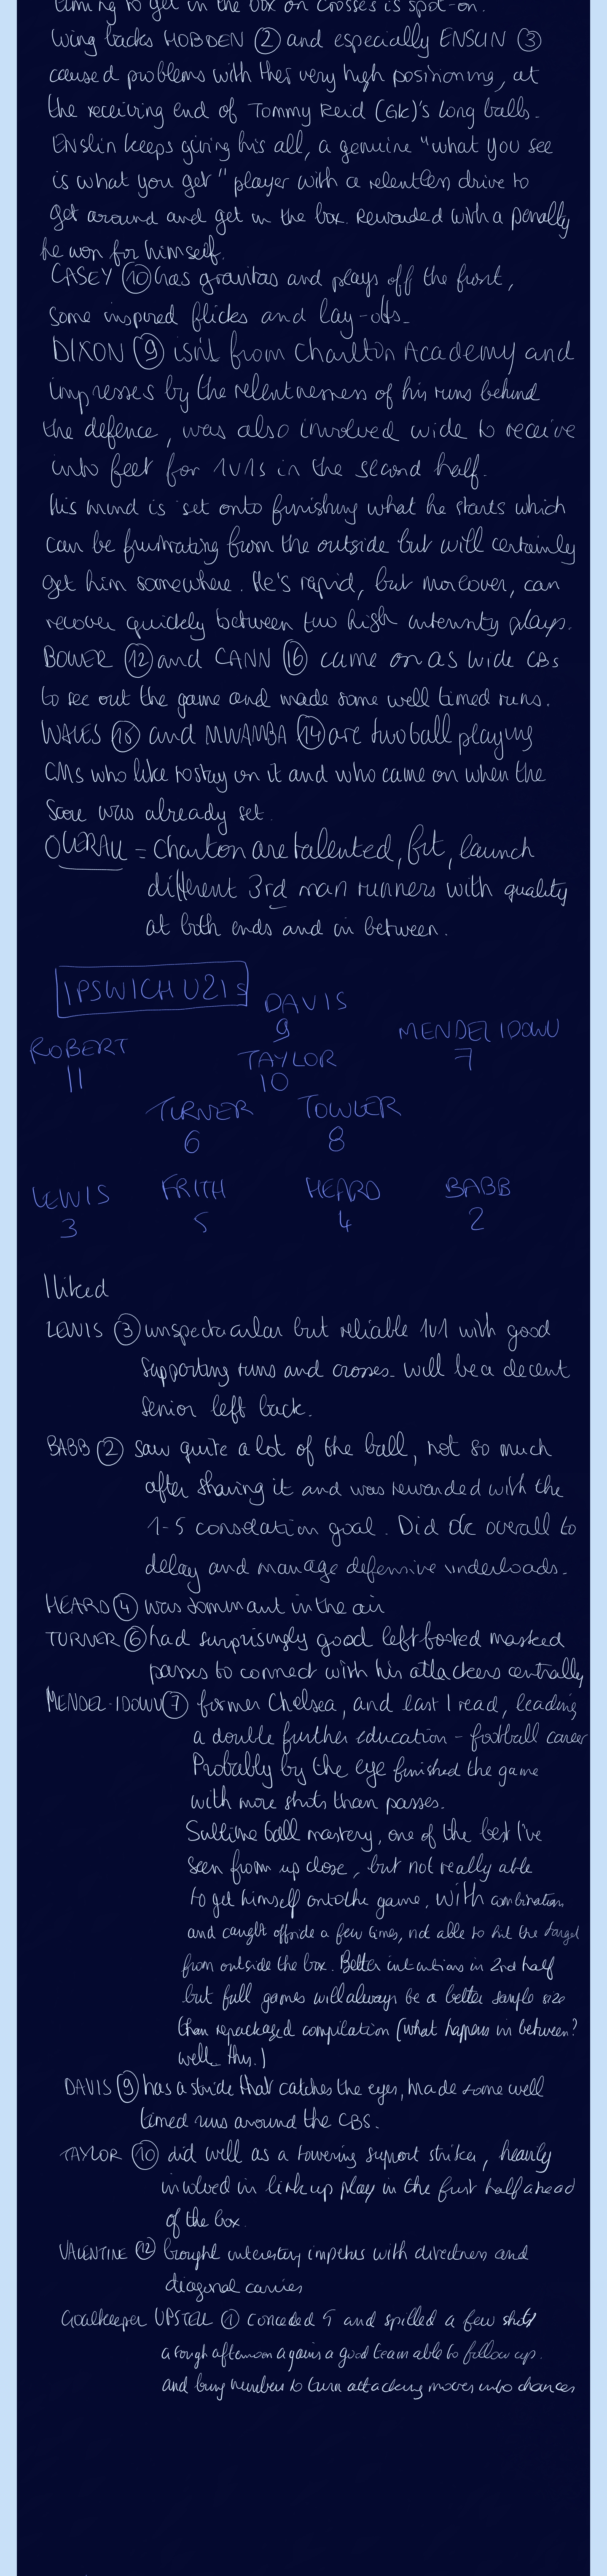 timing to get in the box on crosses is spot-on.
Wing backs HOBDEN (2) and especially ENSLIN (3)
caused problems with their very high positioning, at
the receiving end of Tommy Reid (GK)'s long balls.
ENSlin keeps giving his all, a genuine "what you see
is what you get" player with a relentless drive to
get around and get in the box. Rewarded with a penalty
he won for himself.
CASEY (10) has gravitas and plays off the front,
some inspired flicks and lay-offs.
DIXON (9) isn't from Charlton Academy and
impresses by the relentnessness of his runs behind
the defence, was also involved wide to receive
into feet for 1v1s in the second half.
His mind is set onto finishing what he starts which
can be frustrating from the outside but will certainly
get him somewhere. He's rapid, but moreover, can
recover quickly between two high intensity plays.
BOWER (12) and CANN (16) came on as wide CBs
to see out the game and made some well timed runs.
WALES (18) and MWAMBA (14) are two ball playing
CMs who like to stay on it and who came on when the
score was already set.
OVERALL = Charlton are talented, fit, launch
different 3rd man runners with quality
at both ends and in between.
IPSWICH U21s
DAVIS
9
MENDEL IDOWU
7
ROBERT
11
TAYLOR
10
TURNER
6
TOWLER
8
LEWIS
3
FRITH
5
HEARD
4
BABB
2
I liked
LEWIS (3) unspectacular but reliable 1v1 with good
supporting runs and crosses. Will be a decent
senior left back.
BABB (2) saw quite a lot of the ball, not so much
after sharing it and was rewarded with the
1-5 consolation goal. Did OK overall to
delay and manage defensive underloads.
HEARD (4) was dominant in the air
TURNER (6) had surprisingly good left footed masked
passes to connect with his attackers centrally
MENDEL-IDOWU (7) former Chelsea, and last I read, leading
a double further education - football career
Probably by the eye finished the game
with more shots than passes.
Sublime ball mastery, one of the best I've
seen from up close, but not really able
to get himself onto the game, with combination,
and caught offside a few times, not able to hit the target
from outside the box. Better intentions in 2nd half
but full games will always be a better sample size
than repackaged compilation (what happens in between?
well... this.)
DAVIS (9) has a stride that catches the eyes, made some well
timed runs around the CBS.
TAYLOR (10) did well as a towering support striker, heavily
involved in link up play in the first half ahead
of the box.
VALENTINE (12) brought interesting impetus with directness and
diagonal carries
Goalkeeper UPSTELL (1) conceded 5 and spilled a few shots
a tough afternoon agains a good team able to follow up.
and bring numbers to turn attacking moves into chances